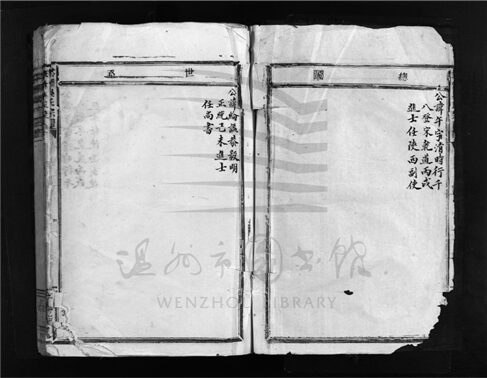 總圖
公諱午字清時行千
八登宋乾道丙戌
進士任陝西副使
世系
公諱綸諡恭毅明
正統己未進士
任尚書
温州市图书馆
WENZHOU LIBRARY